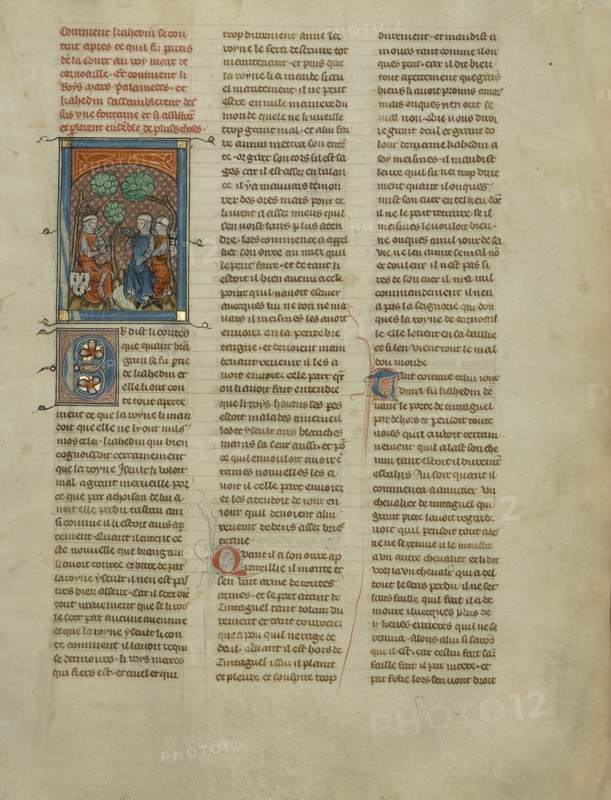 Comment kahedin se con
tint apres ce quil fu partis
de la court au roy marc de
cornoaille. Et comment li
Roys Mars palamedes. et
kahedin sassamblerent des
sus vne fontaine et si assistrent
et pleurent ensamble de pluss choses.
Or dist li contes
que quant bran
gain se fu partie
de kahedin et
elle li ot con
te tout apertement
ment ce que la royne li man
doit que elle ne lyout mais
mos celer. kahedin qui bien
cognoissoit certainement
que la royne Iseult li voloit
mal a grant merueille por
ce que par achoison de lui a
uoit elle perdu tristan aus
si comme il estoit auis ap
tement. Quant il entent ce
ste nouuelle que brangain
li auoit contee et dite de par
la royne yseult il nen est pas
tres bien asseur. Car il scet bie
tout vraiement que se li rois
le scet par aucune auenture
et que la royne yseult li con
te comment il lauoit requi
se damours. li rois marcs
qui fiers est. et cruel et qui
trop durement aime lee
royne le fera destruire tot
maintenant. et puis que
la royne li a mande si cru
el mandement. il ne peut
estre en nulle maniere du
monde quele ne li vueille
trop grant mal. et ainsi fai
re auint mettra son ente
te. Or gart son cors sil est sa
ges car il est assez en balan
ce. il y a mauuais demou
rer des ores mais pour ce
li vient il assez mieus quil
sen voist sans plus aten
dre. lors commence a appa
ller son oirre au mieus quil
le peut faire. et de tant li
estoit il bien auenu a cele
point quil nauoit escuier
auecques lui ne ton ne ma
uais il meismes les auoit
enuoiez en la petite bre
taigne. et deuoient main
tenant reuenir il les a
uoit enuoiez cele part et
on li auoit fait entendre
que li roys houans ses peres
estoit malades durement
les et yseult aus blanches
mains sa seur aussi. et por
ce quil vouloit auoir c
taines nouuelles les a
uoit il celle part enuoiez
et les atendoit de iour en
iour quil deuoient ain
reuenir dedens assez brief
terme.
Quant il a son oirre ap
pareillie il monte et
sen vait arme de toutes
armes. et se part atant de
Tintaguel tant dolans du
rement et tant courouciez
que a pou quil nerage de
dueil. Quant il est hors de
Tintaguel issu il plaint
et pleure et souspire trop
durement. et maudist a
mours tant comme il on
ques peut. car il dit bien
tout apertement que grans
biens li auoit promis amors
mais onques nen out se
mal non. Que nous diroi
ie grant duel et grant do
lour demaine kahedin a
soy meismes. il maudist
leure quil fu nez trop dure
ment quant il onques
mist son cuer en tel lieu dont
il ne le peut retraire se il
meismes le vouloit bien.
ne onques a nul iour de sa
vie ne len auint se mal no
et doulour il nest pas si
res de son cuer il ny a nul
commandement il nen
a pas la seignourie qui don
ques la royne de cornoail
le elle le tient en sa baillie
et si len vient tout le mal
dou monde.
Tout comme celui iour
dura fu kahedin de
uant le porte de tintaguel
par dehors et pensoit toute
uoies quil a doit certain
nement quil a last son che
min tant estoit il durement
esbahis. Au soir quant il
commenca a anuitier vn
cheualier de tintaguel qui
grant piece lauoit regarde
uoit quil pensoit tout ades
ne ne se remue il le moustra
a vn autre cheualier et li dit
veez la vn cheual' qui a del
tout le sens perdu il ne set
sans faille quil fait il a de
moure illuecques plus de
ij lieues entieres quil ne se
remua. alons a lui si sarons
qui il est. car cestui fait sanz
faille fait il par mecre. et
par folie. lors sen vont droit